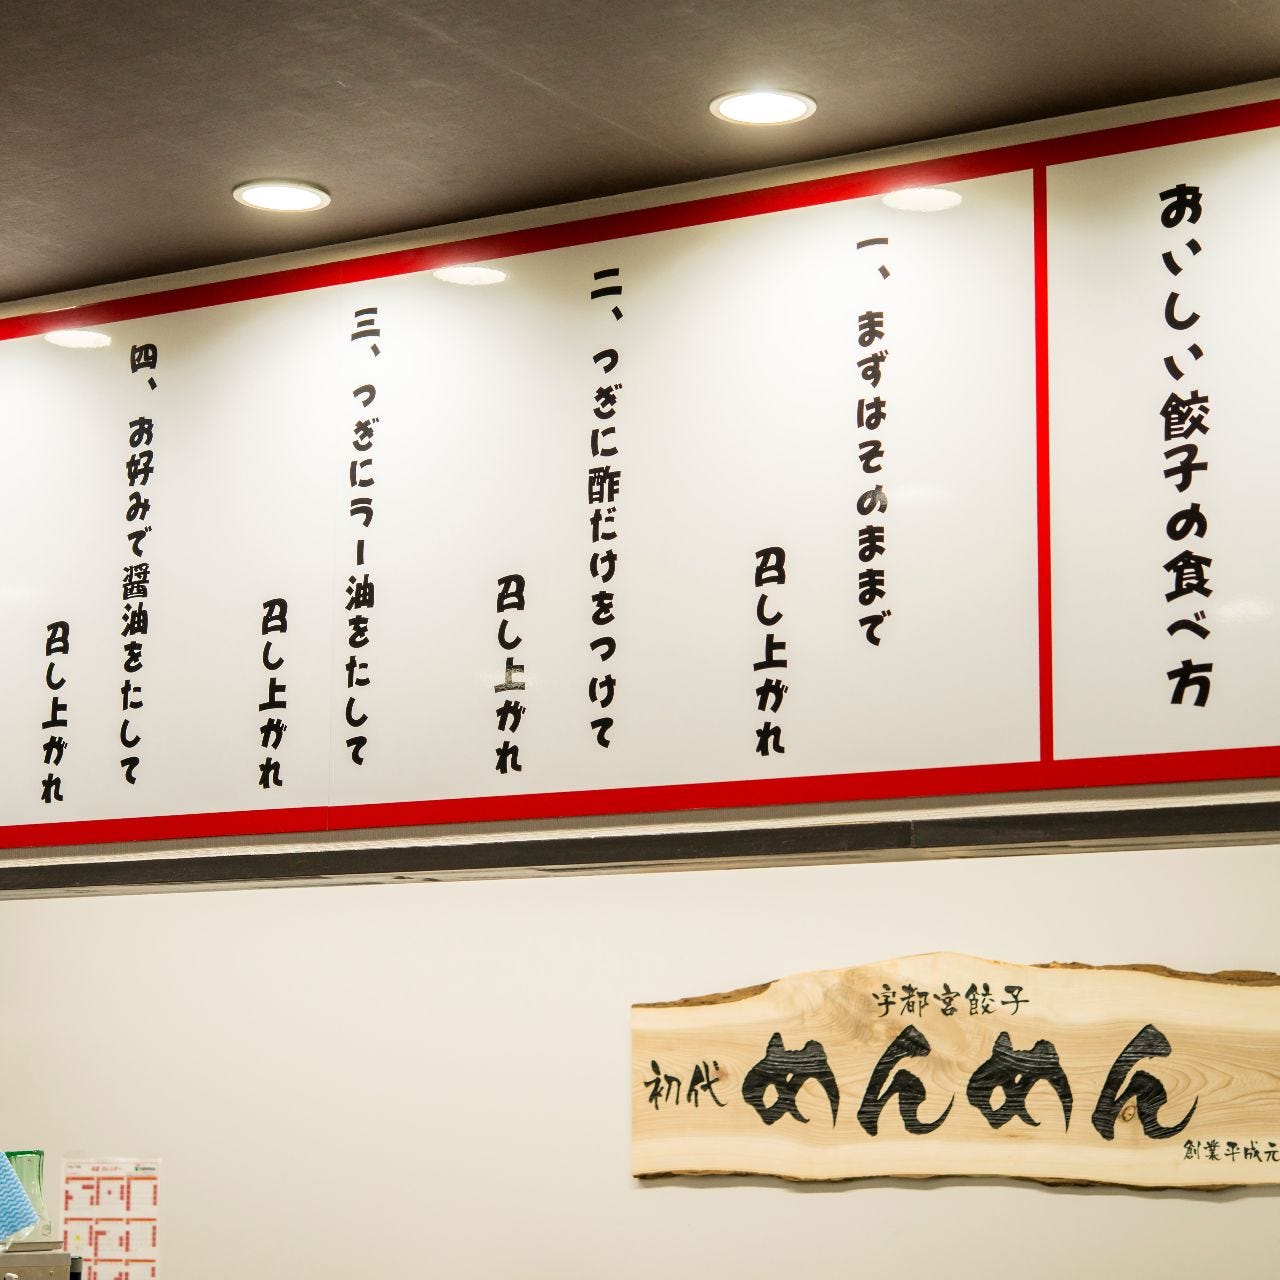 おいしい餃子の食べ方
一、まずはそのままで
召し上がれ
二、つぎに酢だけをつけて
召し上がれ
三、つぎにラー油をたして
召し上がれ
四、お好みで醤油をたして
召し上がれ
宇都宮餃子
初代
めんめん
創業平成元